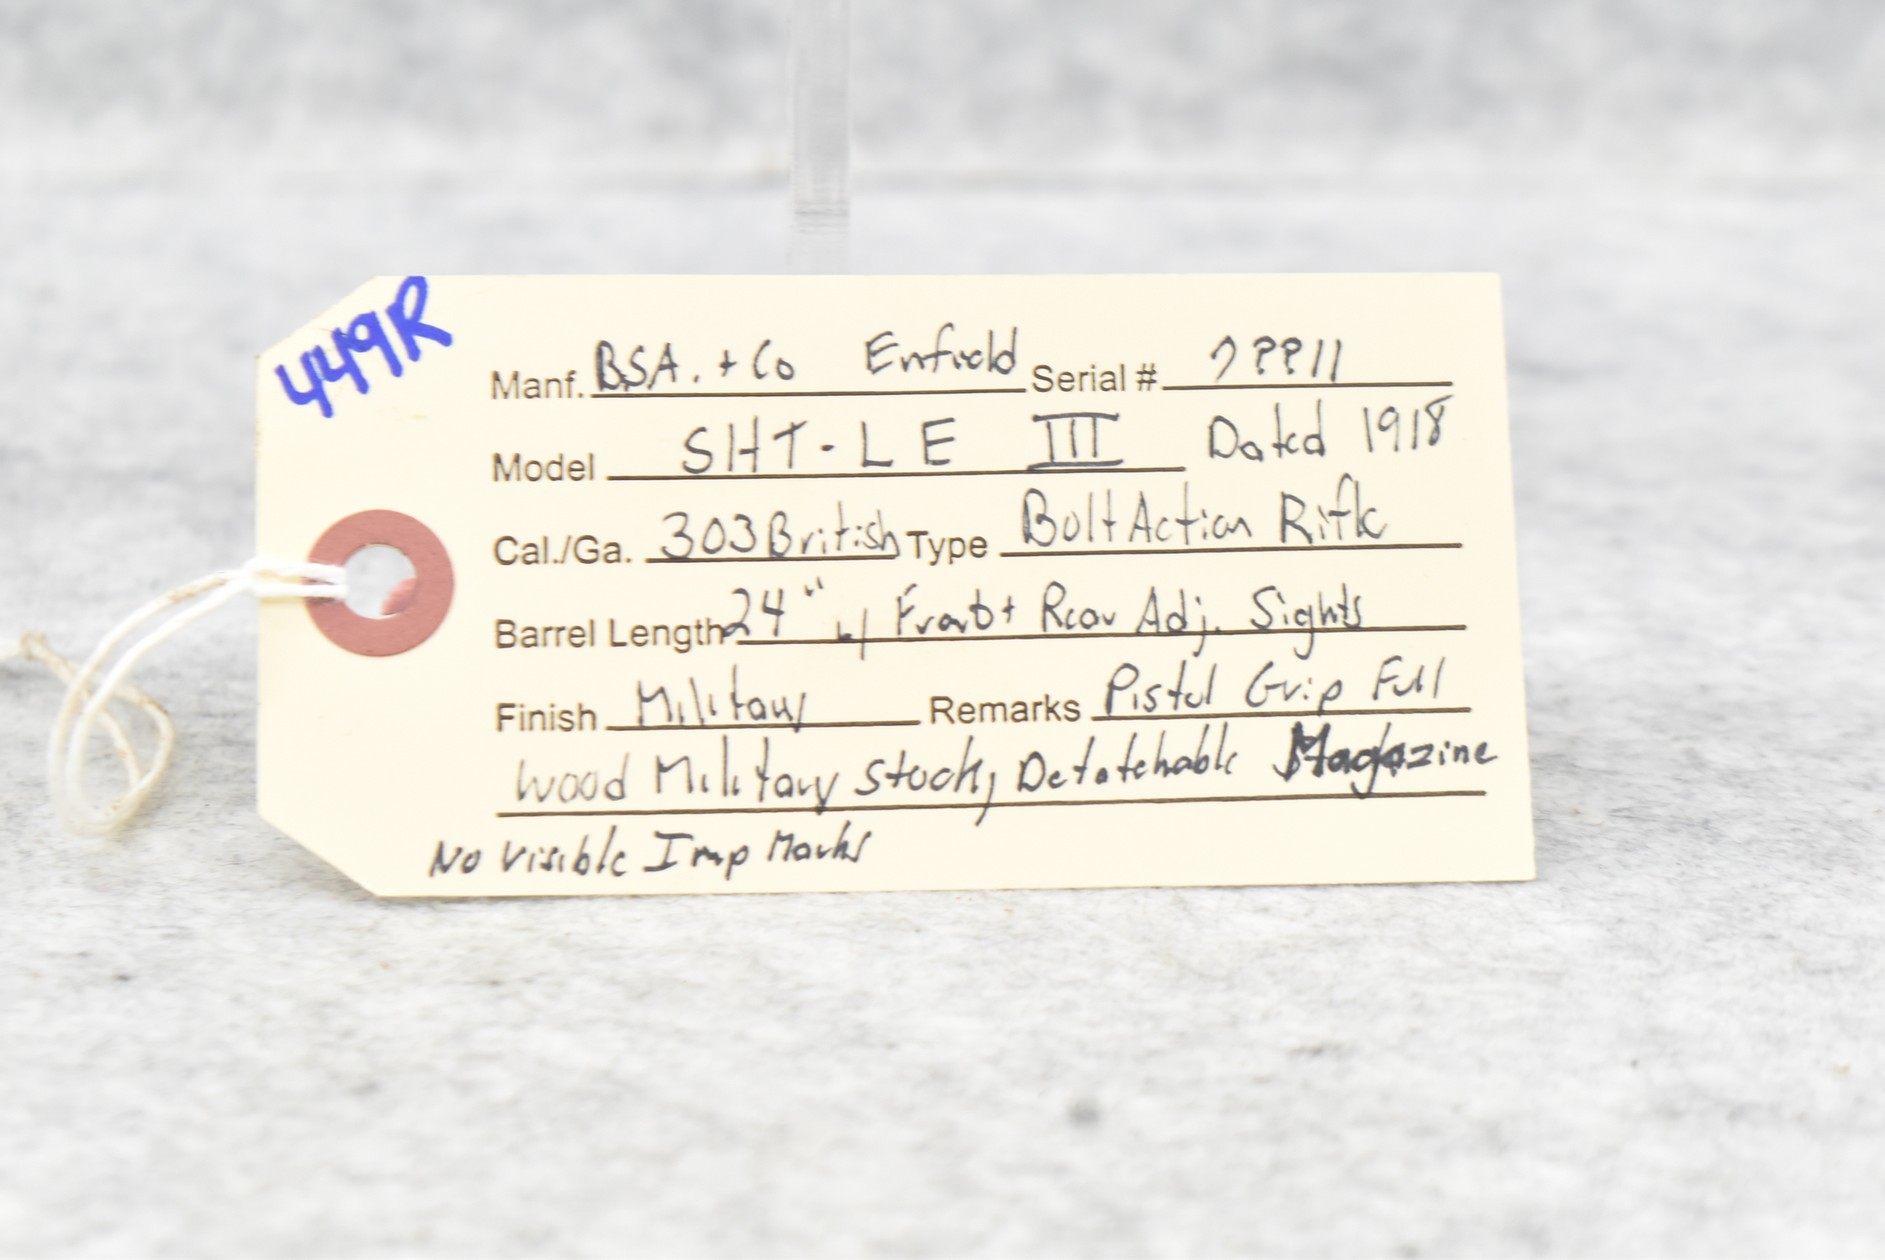 449R
Manf. BSA. + Co Enfield Serial # 7PP11
Model SHT-LE III Dated 1918
Cal./Ga. 303 British Type Bolt Action Rifle
Barrel Length 24" w/ Front + Rear Adj. Sights
Finish Military Remarks Pistol Grip Full
Wood Military Stock, Detatchable Magazine
No Visible Imp Marks